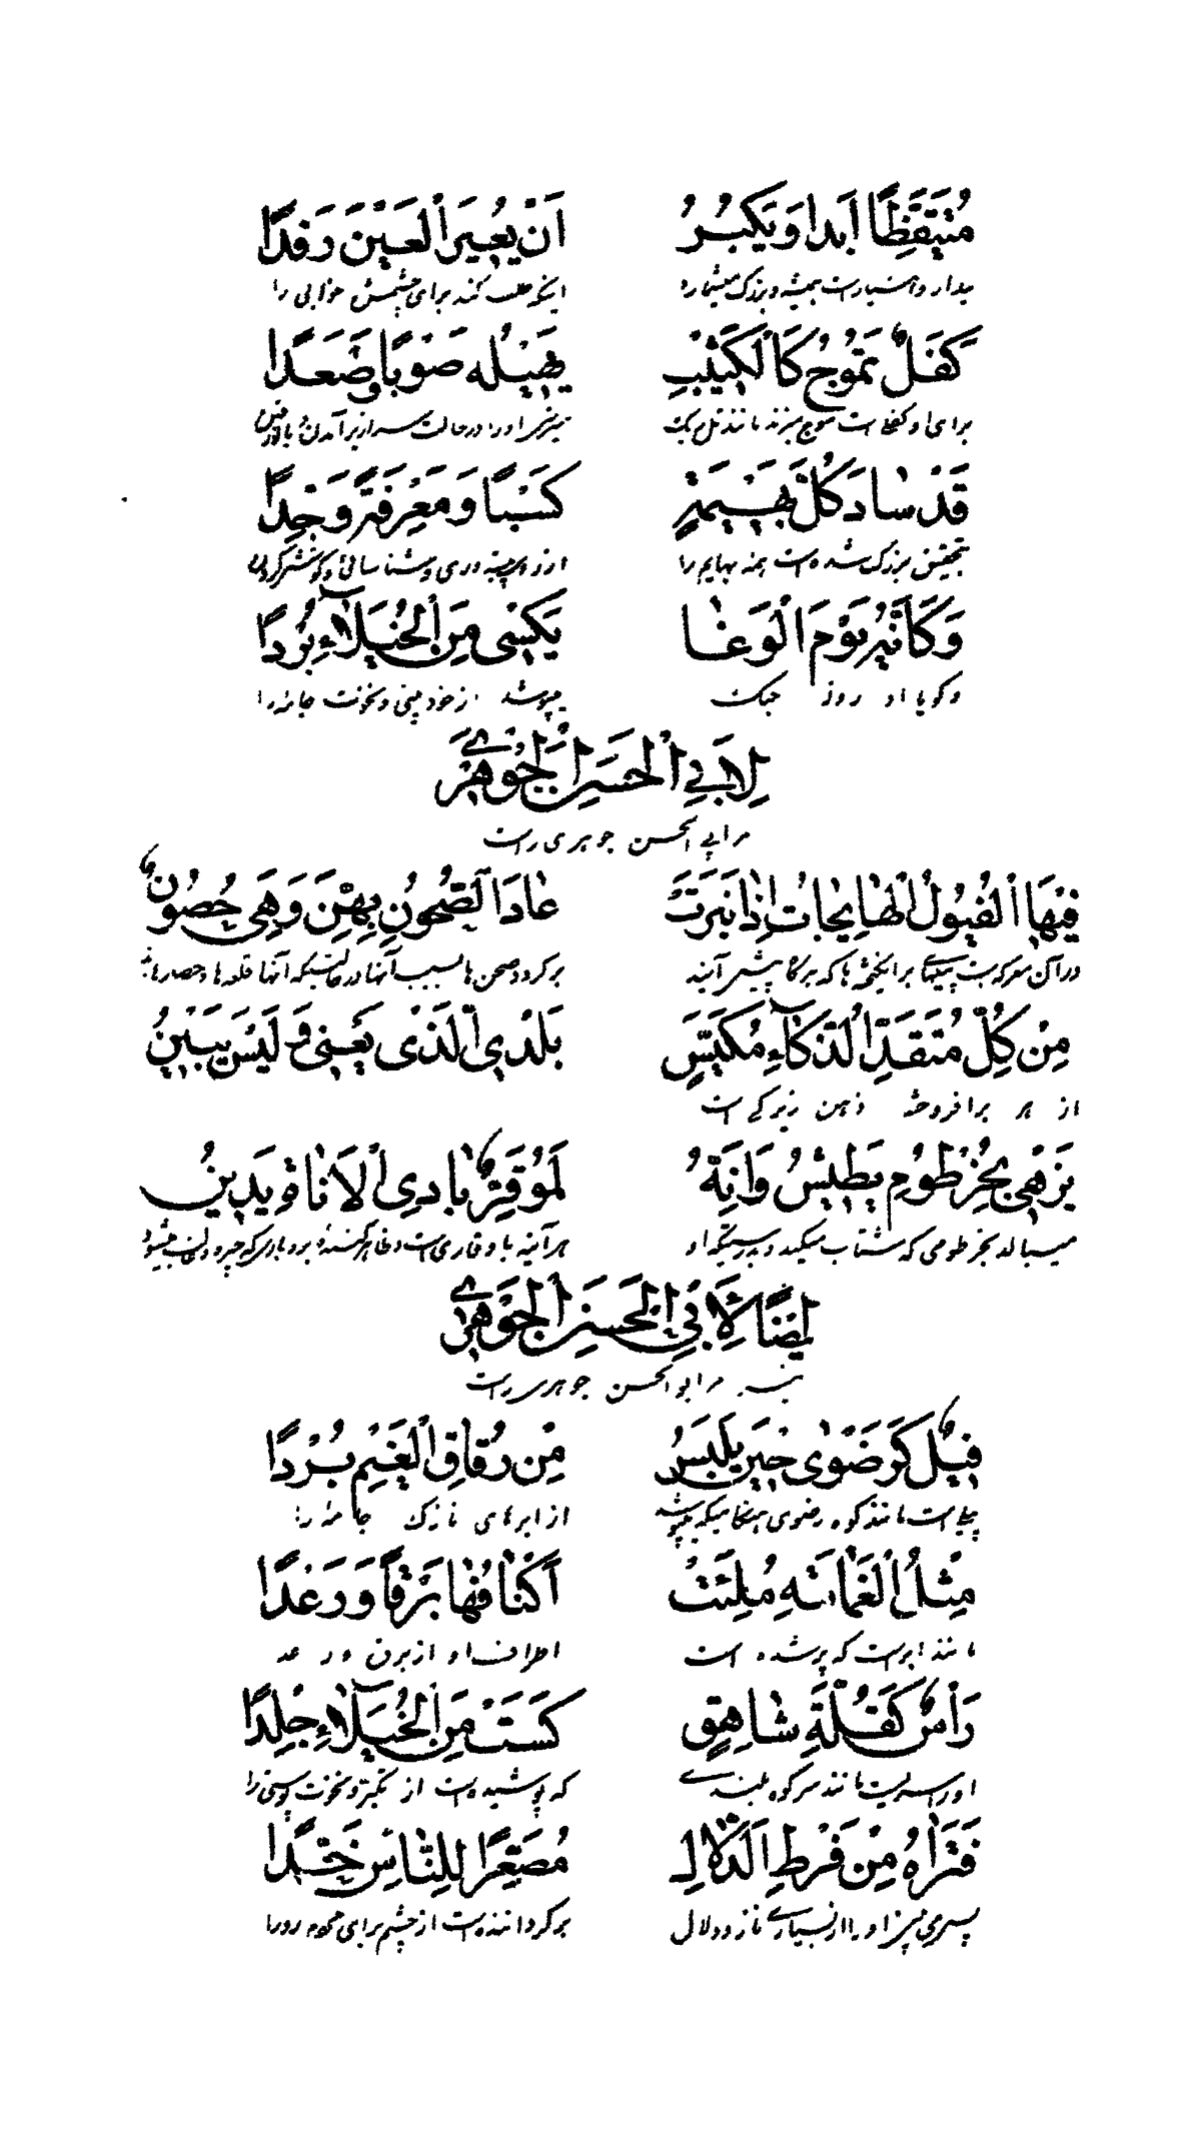 مُتَيَقِّظًا اَبَدا وَيَكبُرُ اَنْ يُعِيرَ الْعَيْنَ رَقدًا
بیدار و هشیارست همیشه و بزرگ میشمارد اینکه طلب کند برای چشمش خوابی را
كَفَلٌ تَمُوجُ كَالْكَثِيْبِ يَهِيْلُه صَوْبًا وَصَعَدًا
برای او کفلی است موج میزند مانند تل ریگ میریزد او را در حالت سرازیر آمدن و بالا رفتن
قَدْ سادَ كُلَّ بَهِيْمَةٍ كَسْبًا وَمَعْرِفَةً وَجِدًا
بتحقیق بزرگ شده است همه بهایم را از
وَكَأَنَّهُ يَوْمَ الْوَغَا يُكْسٰى مِنَ الْخُيَلَآءِ بُرْدًا
و گویا او روز جنگ میپوشد از خود بینی و نخوت جامه را
لِاَبِي الْحَسَنِ الْجَوْهَرِيّ
مر ابی الحسن جوهری راست
فِيْهَا الْفُيُوْلُ الْهَايِجَاتُ اِذَا نَبَرَتْ عادَ الصُّحُونُ بِهِنَّ وَهِيَ حُصُونٌ
در آن معرکه است پیلهای برانگیخته ها که هرگاه پیش آیند برگردد صحن ها بسبب آنها در حالیکه آنها قلعه ها و حصارها
مِنْ كُلِّ مُتَّقَدِ الذَّكَآءِ مُكَيَّسٍ بَلَدِيّ الَّذِى يَعْنِى وَلَيْسَ يَبِيْنُ
از هر برافروخته ذهن زیرکی است
يَزْهِى بِخُرْطُومٍ يَطِيْشُ وَاِنَّهُ لَمُوَقَّرٌ بادِى الْاَنَاةِ يَدِينُ
میبالد بخرطومی که شتاب میکند و بدرستیکه او هر آینه با وقاری است و ظاهر کننده بردباری
اَيْضًا لِاَبِي الْحَسَنِ الْجَوْهَرِيّ
نیز مر ابو الحسن جوهری راست
فِيْلٌ كَرَضْوٰى حِيْنَ يَلْبَسُ مِنْ رُقَاقِ الْغَيْمِ بُرْدًا
پیلی است مانند کوه رضوی هنگامیکه میپوشد از ابرهای نازک جامه را
مِثْلُ الْغَمَامَةِ مُلِئَتْ اَكْنَافُهَا بَرْقًا وَرَعْدًا
مانند ابریست که پر شده است اطراف او از برق و رعد
رَأْسٌ كَقُلَّةِ شَاهِقٍ كُسِيَتْ مِنَ الْخُيَلَآءِ جِلْدًا
او را سریست مانند سر کوه بلندے که پوشیده است از تکبر و نخوت پوستی را
فَتَرَاهُ مِنْ فَرْطِ الدَّلَالِ مُصَعِّرًا لِلنَّاسِ خَدًّا
پس می بینی او را از بسیاری ناز و دلال برگرداننده است از خشم برای مردم رو را